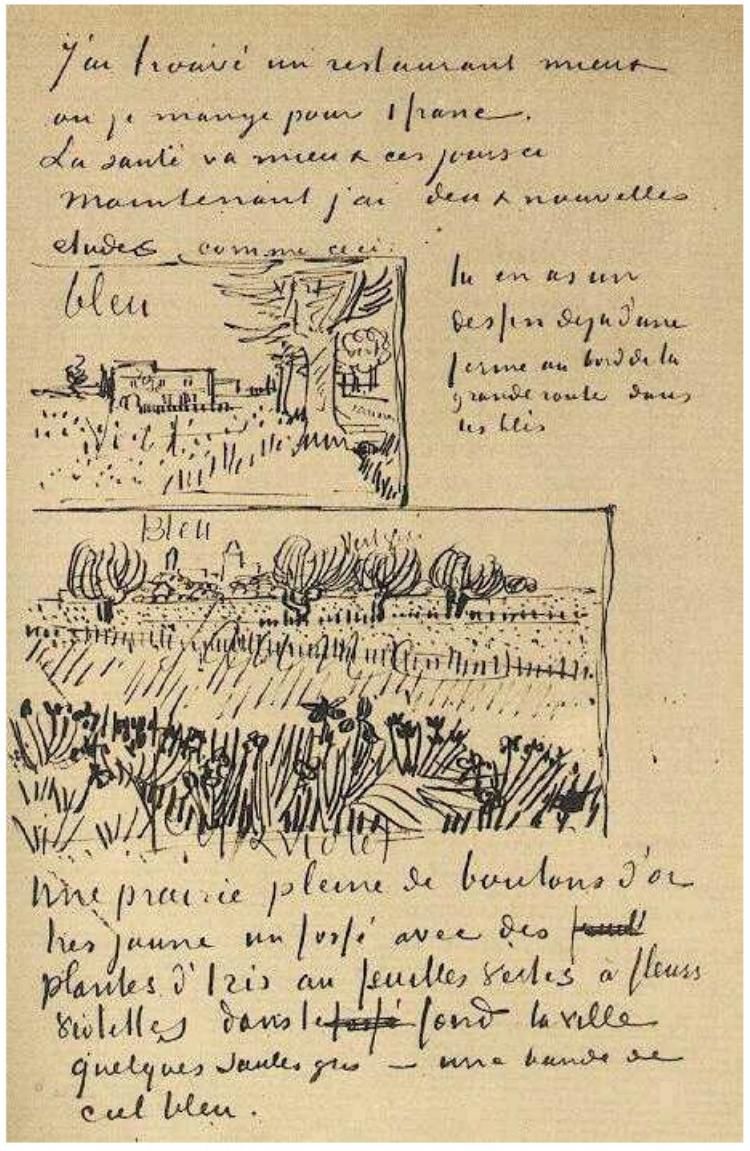 J'ai trouvé un restaurant mieux
ou je mange pour 1 franc.
La santé va mieux ces jours ci
Maintenant j'ai deux nouvelles
etudes comme ceci:
bleu
vert
vert
jaune
tu en as un
dessin deja d'une
ferme au bord de la
grande route dans
les blés
Bleu
Vert gris
violet
Une prairie pleine de boutons d'or
tres jaune un fossé avec des
plantes d'Iris au feuilles vertes à fleurs
violettes dans le fossé fond la ville
quelques saules gris — une bande de
ciel bleu.